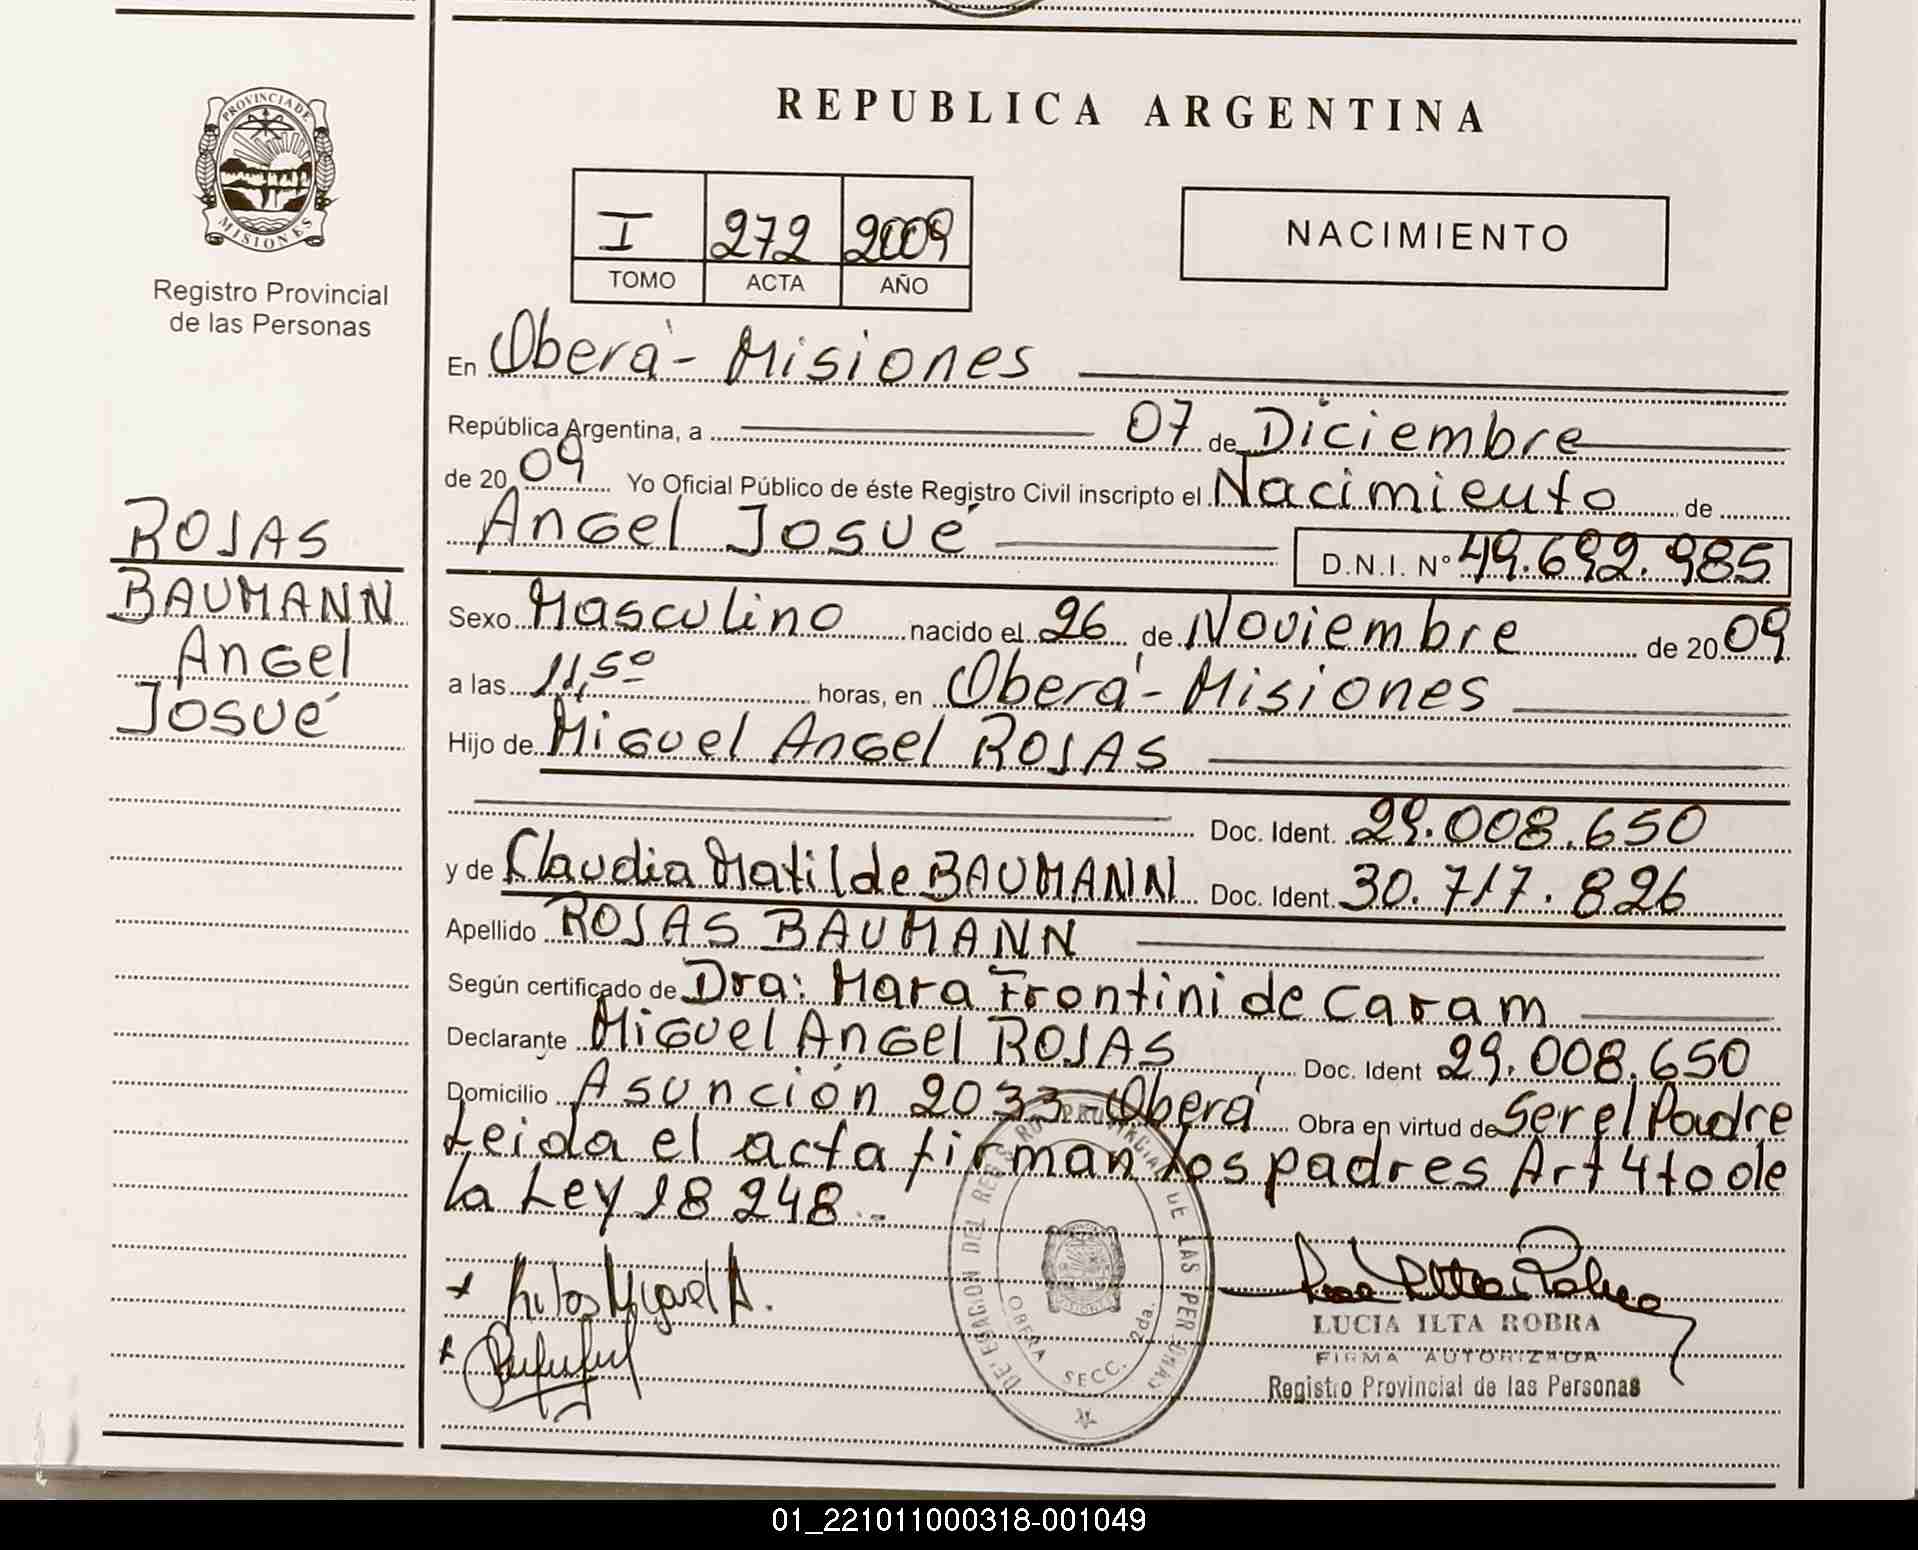 PROVINCIA DE
MISIONES
Registro Provincial
de las Personas
ROJAS
BAUMANN
Angel
Josué
REPUBLICA ARGENTINA
I 272 2009
TOMO ACTA AÑO
NACIMIENTO
En Oberá - Misiones
República Argentina, a 07 de Diciembre
de 20 09 Yo Oficial Público de éste Registro Civil inscripto el Nacimiento de
Angel Josué D.N.I. Nº 49.692.985
Sexo Masculino nacido el 26 de Noviembre de 20 09
a las 11,50 horas, en Oberá - Misiones
Hijo de Miguel Angel ROJAS
Doc. Ident. 29.008.650
y de Claudia Matilde BAUMANN Doc. Ident. 30.717.826
Apellido ROJAS BAUMANN
Según certificado de Dra: Mara Frontini de Caram
Declarante Miguel Angel ROJAS Doc. Ident 29.008.650
Domicilio Asunción 2033 - Oberá Obra en virtud de Ser el Padre
Leida el acta firman los padres Art 4to de
la Ley 18 248.-
DELEGACION DEL REGISTRO PROVINCIAL DE LAS PERSONAS
OBERA SECC. 2da.
Miguel A.
LUCIA ILTA ROBRA
FIRMA AUTORIZADA
Registro Provincial de las Personas
01_221011000318-001049